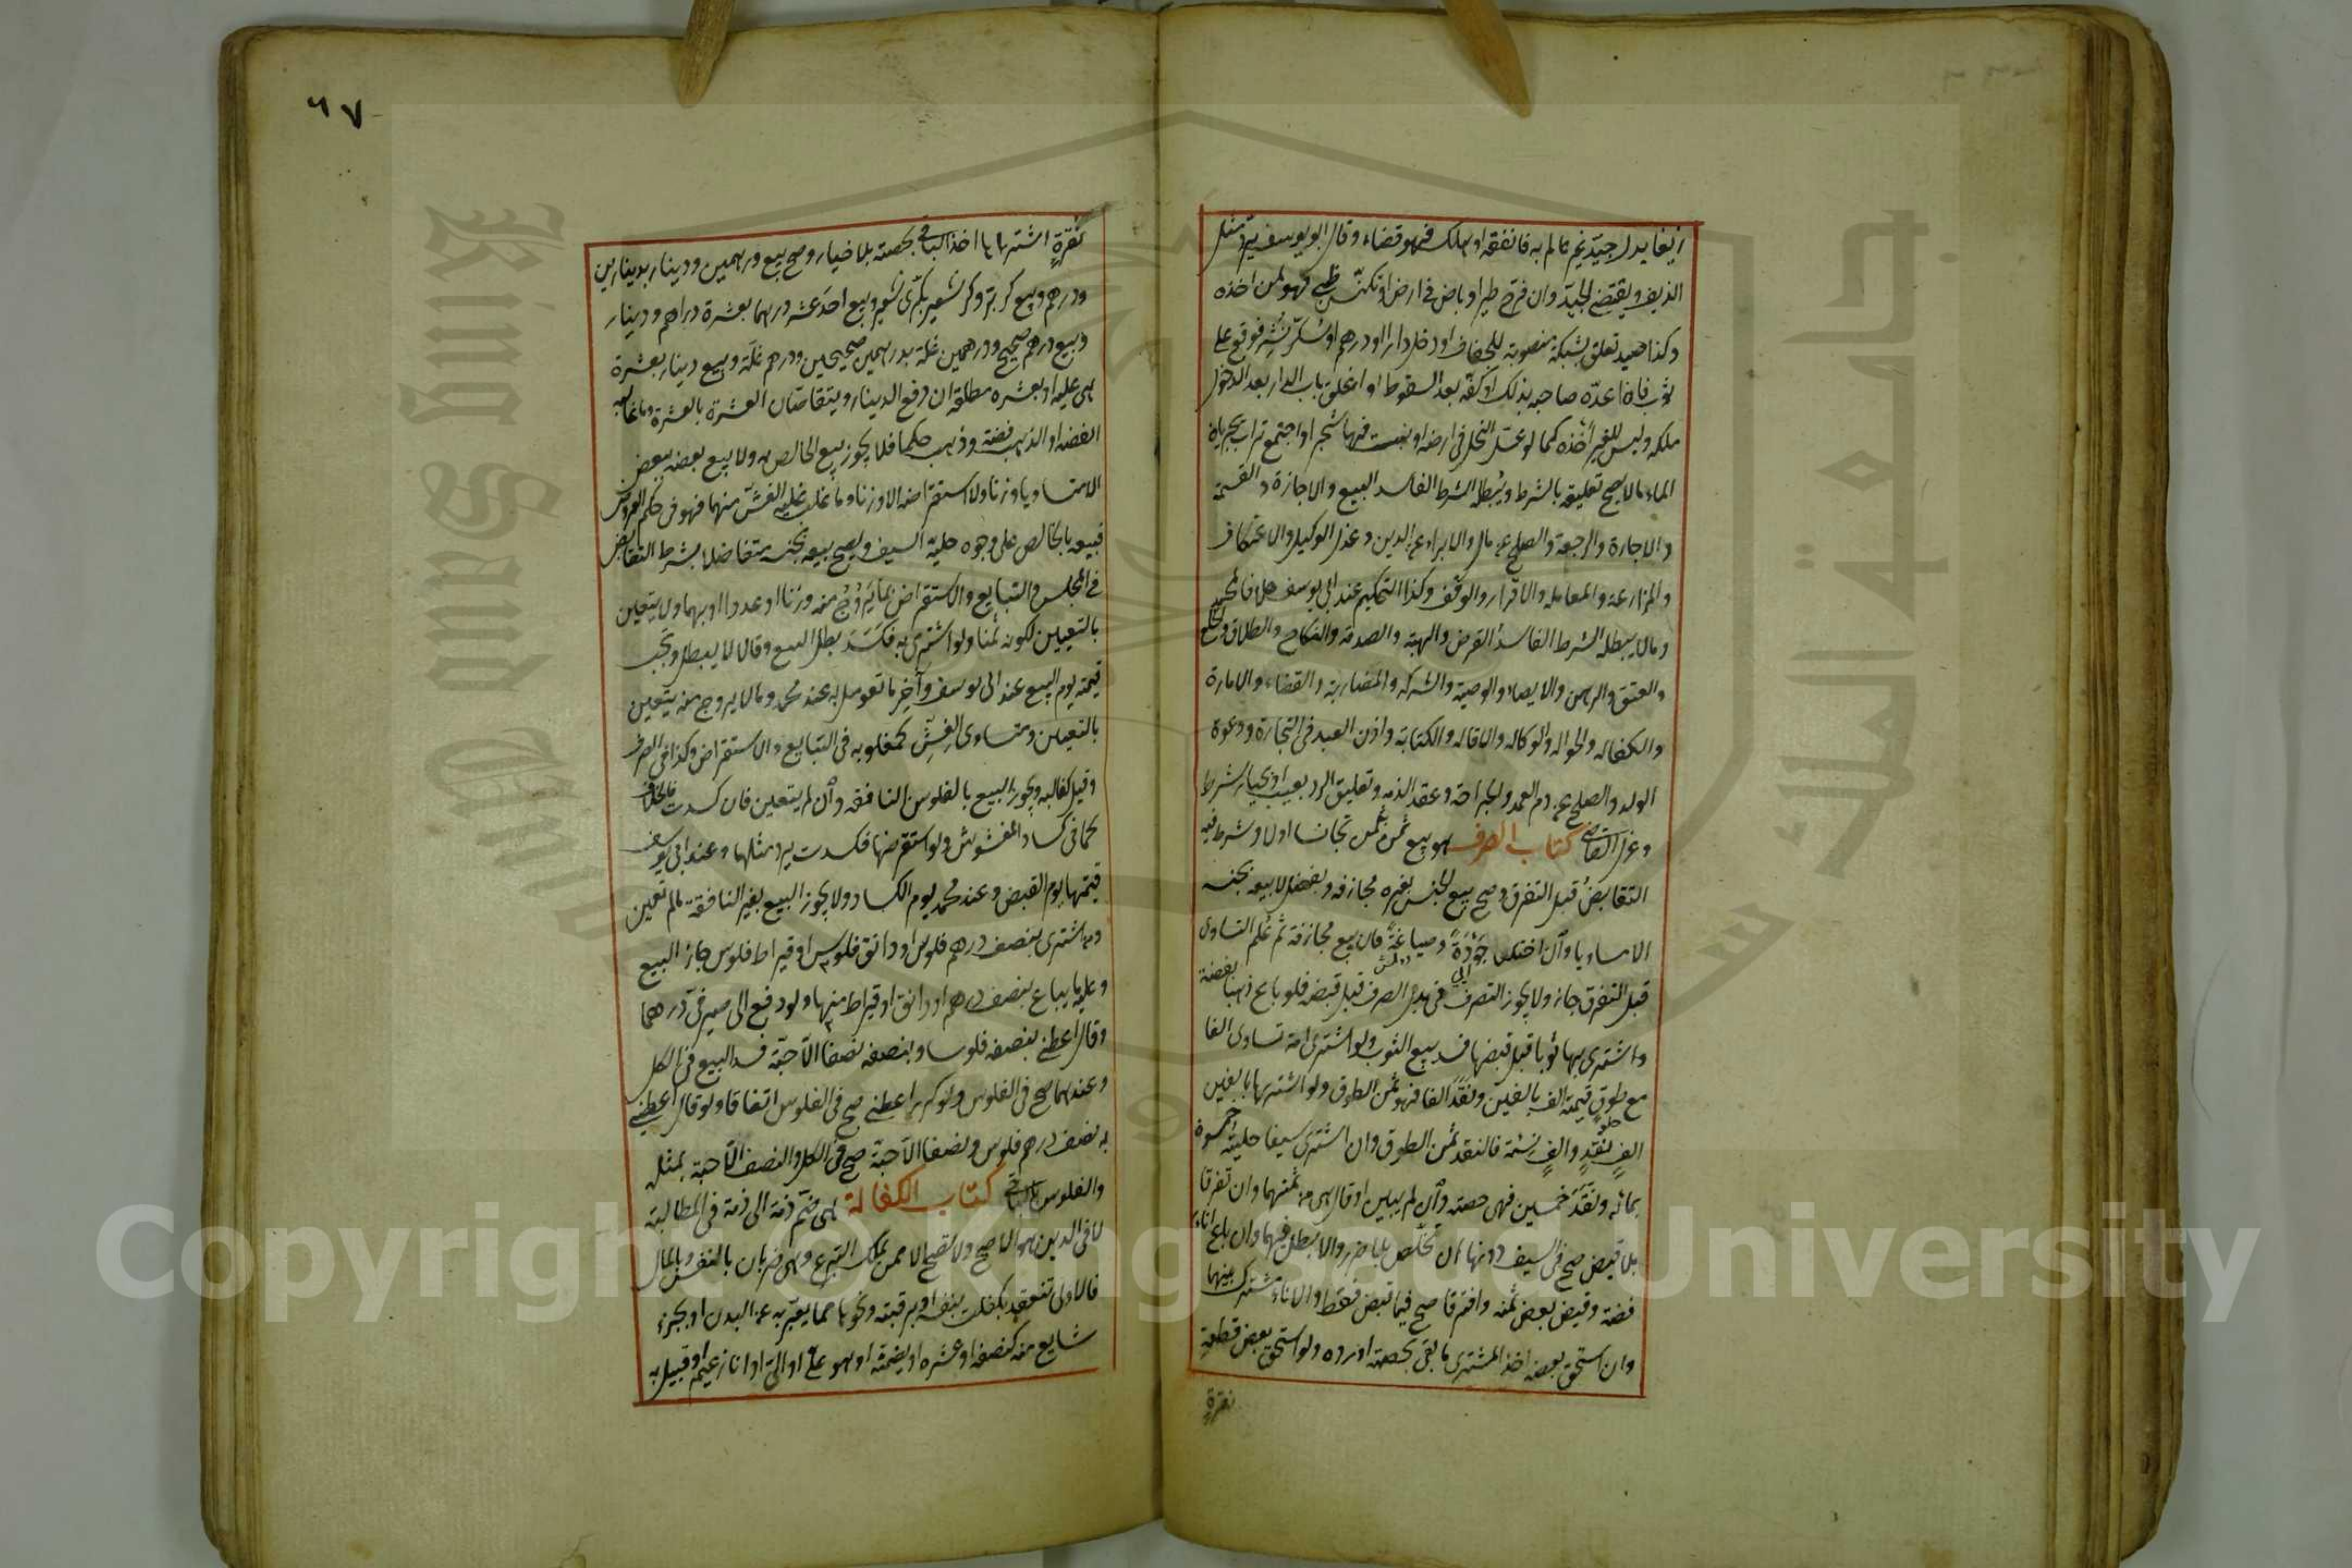 زيفا بدل جيد غير عالم به فانفقه او هلك فهو قضاء وقال ابو يوسف يرد مثل
الزيف ويقتضى الجيد وان فرخ طير او باض فى ارض او تكنس ظبى فهو لمن اخذه
وكذا صيد تعلق بشبكة منصوبة للجفاف او دخل دارا او درهم او سكر نثر فوقع على
ثوب فان اعده صاحبه بذلك او كفه بعد السقوط او اغلق باب الدار بعد الدخول
ملكه وليس للغير اخذه كما لو عسل النحل فى ارضه او نبت فيها شجر او اجتمع تراب بجريان
الماء ما لا يصح تعليقه بالشرط ويبطله الشرط الفاسد البيع والاجازة والقسمة
والاجارة والرجعة والصلح عن مال والابراء عن الدين وعزل الوكيل والاعتكاف
والمزارعة والمعامله والاقرار والوقف وكذا التحكيم عند ابى يوسف خلافا لمحمد
وما لا يبطله الشرط الفاسد القرض والهبة والصدقة والنكاح والطلاق والخلع
والعتق والرهن والايصاء والوصية والشركه والمضاربة والقضاء والامارة
والكفاله والحواله والوكاله والاقاله والكتابة واذن العبد فى التجارة ودعوة
الولد والصلح عن دم العمد والجراحة وعقد الذمه وتعليق الرد بعيب او بخيار شرط
وعزل القاضى كتاب الصرف هو بيع ثمن بثمن تجانسا اولا وشرط فيه
التقابض قبل التفرق وصح بيع الجنس بغيره مجازفه وبفضل لا بيعه بجنسه
الا متساويا وان اختلفا جودة وصياغة فان بيع مجازفة ثم علم التساوى
قبل التفرق جاز ولا يجوز التصرف فى بدل الصرف قبل قبضه فلو باع ذهبا بفضة
واشترى بها ثوبا قبل قبضها فسد بيع الثوب ولو اشترى امة تساوى الفا
مع طوق قيمته الف بالفين ونقد الفا فهو ثمن الطوق ولو اشتراها بالفين
الف نقد والف نسئة فالنقد ثمن الطوق وان اشترى سيفا حليته خمسون
بمائه ونقد خمسين فهى حصته وان لم يبين او قال هى من ثمنهما وان تفرقا
بلا قبض صح فى السيف دونها ان تخلص بلا ضرر والا بطل فيهما وان باع اناء
فضة وقبض بعض ثمنه وافترقا صح فيما قبض فقط والاناء مشترك بينهما
وان استحق بعضه اخذ المشترى ما بقى بحصته او رده ولو استحق بعض قطعة
نقرة
٦٧
نقرة اشتراها اخذ الباقى بحصته بلا خيار وصح بيع درهمين ودينار بدينارين
ودرهم وبيع كر بر وكر شعير بكرى شعير وبيع احد عشر درهما بعشرة دراهم ودينار
وبيع درهم صحيح ودرهمين غلة بدرهمين صحيحين ودرهم غلة وبيع دينار بعشرة
هى عليه او بعشره مطلقة ان دفع الدينار ويتقاصان العشرة بالعشرة وما غالبه
الفضه او الذهب فضة وذهب حكما فلا يجوز بيع الخالص به ولا بيع بعضه ببعض
الا متساويا وزنا ولا استقراضه الا وزنا وما غلب عليه الغش منهما فهو فى حكم العروض
فبيعه بالخالص على وجوه حلية السيف ويصح بيعه بجنسه متفاضلا بشرط التقابض
فى المجلس والتبايع والاستقراض بما يروج منه وزنا او عددا او بهما ولا يتعين
بالتعيين لكونه ثمنا ولو اشترى به فكسد بطل البيع وقالا لا يبطل وتجب
قيمته يوم البيع عند ابى يوسف وآخر ما تعومل به عند محمد وما لا يروج منه يتعين
بالتعيين ومتساوى الغش كمغلوبه فى التبايع والاستقراض وكذا فى الصرف
وقيل كغالبه ويجوز البيع بالفلوس النافقه وان لم يتعين فان كسدت فالخلاف
كما فى كساد المغشوش ولو استقرضها فكسدت يرد مثلها وعند ابى يوسف
قيمتها يوم القبض وعند محمد يوم الكساد ولا يجوز البيع بغير النافقة ما لم تعين
ومن اشترى بنصف درهم فلوس او دانق فلوس او قيراط فلوس جاز البيع
وعليه ما يباع بنصف درهم او دانق او قيراط منها ولو دفع الى صيرفى درهما
وقال اعطنى بنصفه فلوسا وبنصفه نصفا الا حبة فسد البيع فى الكل
وعندهما صح فى الفلوس ولو كرر اعطنى صح فى الفلوس اتفاقا ولو قال اعطنى
به نصف درهم فلوس ونصفا الا حبة صح فى الكل والنصف الا حبة بمثله
والفلوس بالباقى كتاب الكفالة هى ضم ذمة الى ذمة فى المطالبة
لا فى الدين هو الاصح ولا تصح الا ممن يملك التبرع وهى ضربان بالنفس وبالمال
فالاولى تنعقد بكفلت بنفسه او برقبته ونحوها مما يعبر به عن البدن او بجزء
شايع منه كنصفه او عشره او بضمنته او هو على او الى او انا زعيم او قبيل به